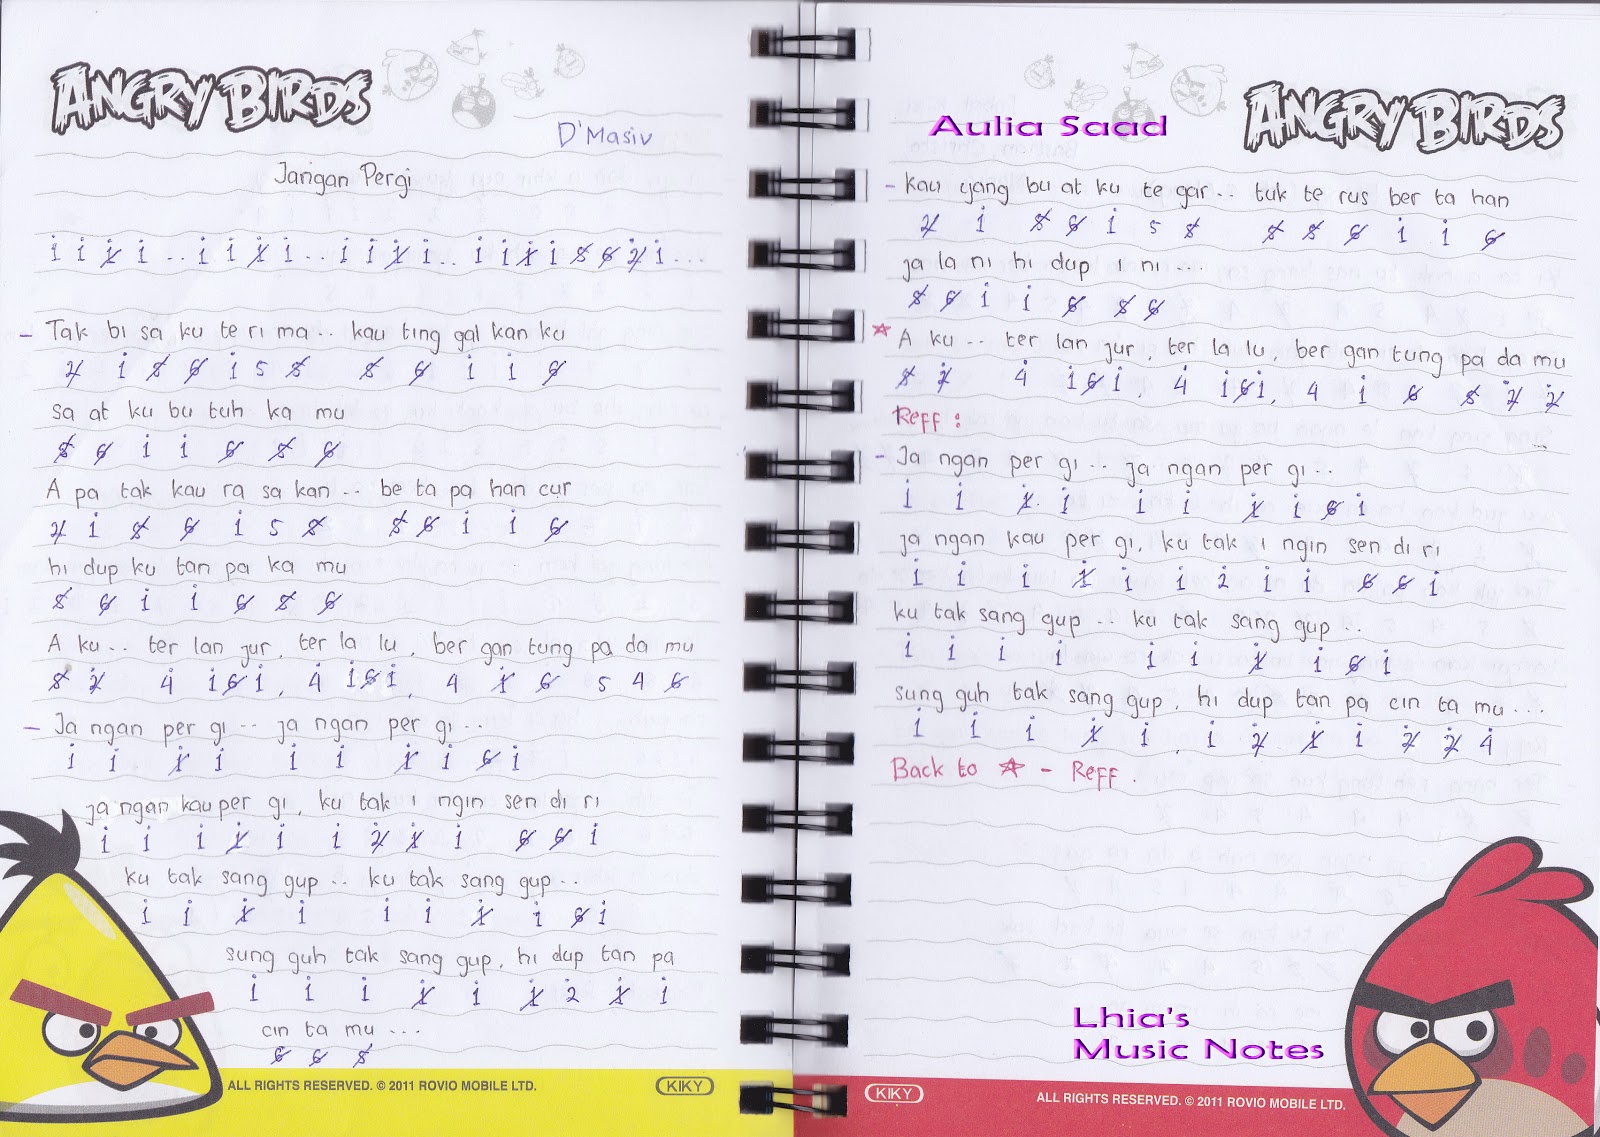 ANGRY BIRDS
D'Masiv
Jangan Pergi
i i i̸ i .. i i i̸ i .. i i i̸ i .. i i i̸ i 5̸ 6̸ 2̸̇ i ...
- Tak bi sa ku te ri ma .. kau ting gal kan ku
2̸ i 5̸ 6̸ i 5 5̸ 5̸ 6̸ i i 6̸
sa at ku bu tuh ka mu
5̸ 6̸ i i 6̸ 5̸ 6̸
A pa tak kau ra sa kan .. be ta pa han cur
2̸ i 5̸ 6̸ i 5 5̸ 5̸ 6̸ i i 6̸
hi dup ku tan pa ka mu
5̸ 6̸ i i 6̸ 5̸ 6̸
A ku .. ter lan jur, ter la lu, ber gan tung pa da mu
5̸ 2̸̇ 4̇ i 6̸ i, 4̇ i 6̸ i, 4 i̸ 6̸ 5 4 6̸
- Ja ngan per gi .. ja ngan per gi ...
i i i̸ i i i i̸ i 6̸ i
ja ngan kau per gi, ku tak i ngin sen di ri
i i i i̸ i i 2̸̇ i̸ i 6̸ 6̸ i
ku tak sang gup .. ku tak sang gup ..
i i i̸ i i i i̸ i 6̸ i
sung guh tak sang gup, hi dup tan pa
i i i i̸ i i̸ 2̇ i̸ i
cin ta mu ...
6̸ 6̸ 5̸
ALL RIGHTS RESERVED. © 2011 ROVIO MOBILE LTD.
KIKY
Aulia Saad
ANGRY BIRDS
- Kau yang bu at ku te gar .. tuk te rus ber ta han
2̸ i 5̸ 6̸ i 5 5̸ 5̸ 5̸ 6̸ i i 6̸
ja la ni hi dup i ni ...
5̸ 6̸ i i 6̸ 5̸ 6̸
☆ A ku .. ter lan jur, ter la lu, ber gan tung pa da mu
5̸ 2̸̇ 4̇ i 6̸ i, 4̇ i 6̸ i, 4 i 6̸ 5̸ 2̸̇ 2̸̇
Reff :
- Ja ngan per gi .. ja ngan per gi ..
i i i̸ i i i i̸ i 6̸ i
ja ngan kau per gi, ku tak i ngin sen di ri
i i i i̸ i i 2̇ i i 6̸ 6̸ i
ku tak sang gup .. ku tak sang gup ..
i i i i i i i̸ i 6̸ i
sung guh tak sang gup, hi dup tan pa cin ta mu ...
i i i i̸ i, i 2̸̇ i̸ i 2̸̇ 2̸̇ 4̇
Back to ☆ - Reff.
Lhia's
Music Notes
KIKY
ALL RIGHTS RESERVED. © 2011 ROVIO MOBILE LTD.